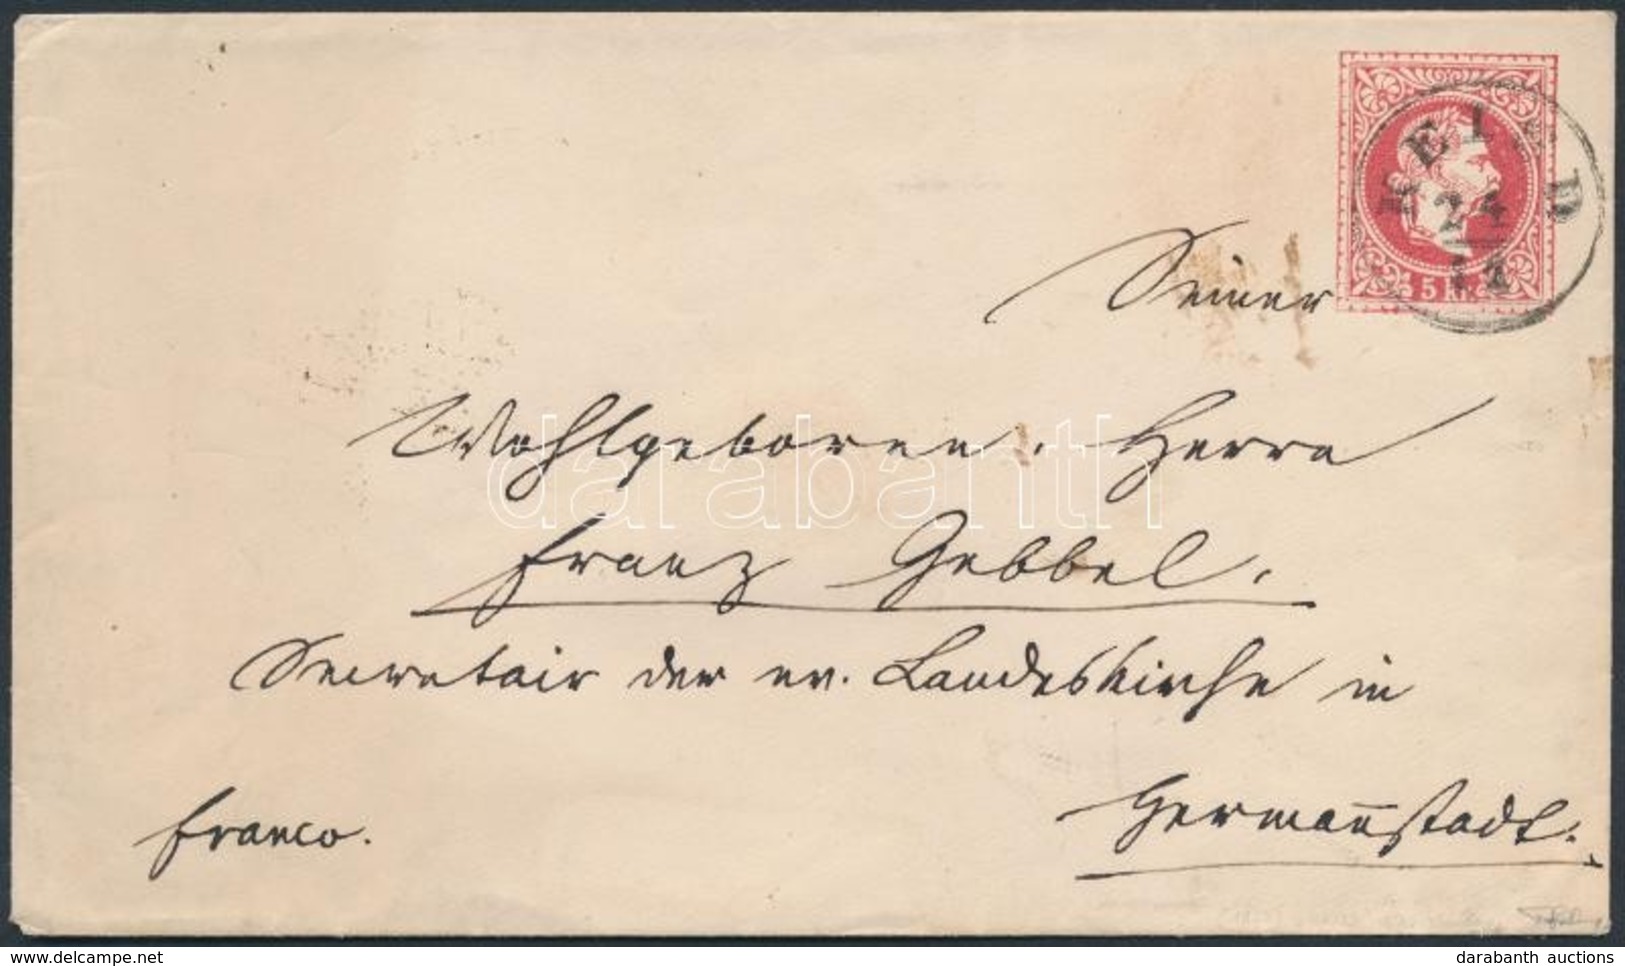 REISD
24
11
5 Kr.
Seiner
Wohlgeboren. Herrn
darabanth
Franz Gebbel.
Secretair der ev. Landeskirche in
Hermannstadt.
franco.
delcampe.net
darabanth auctions